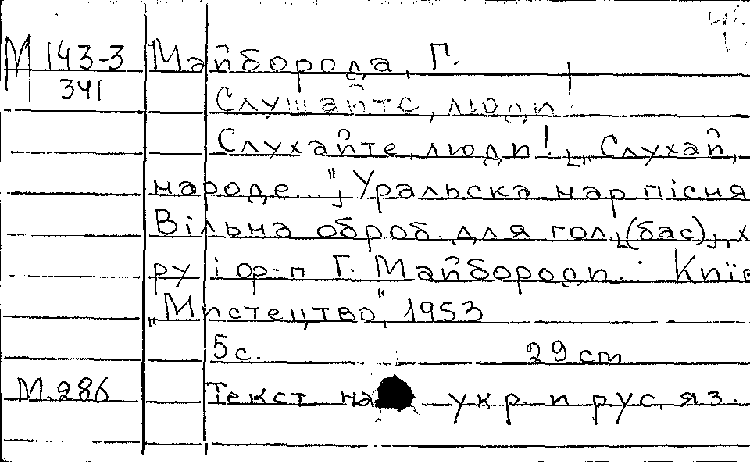 М 143-3 Майборода, Г.
341 Слушайте, люди!
Слухайте, люди! „Слухай,
народе..." Уральска нар пісня
Вільна оброб. для гол. (бас), х
ру і ор-п Г. Майбороди. Київ
„Мистецтво", 1953
5 с. 29 cm
М.286 Текст на укр и рус. яз.